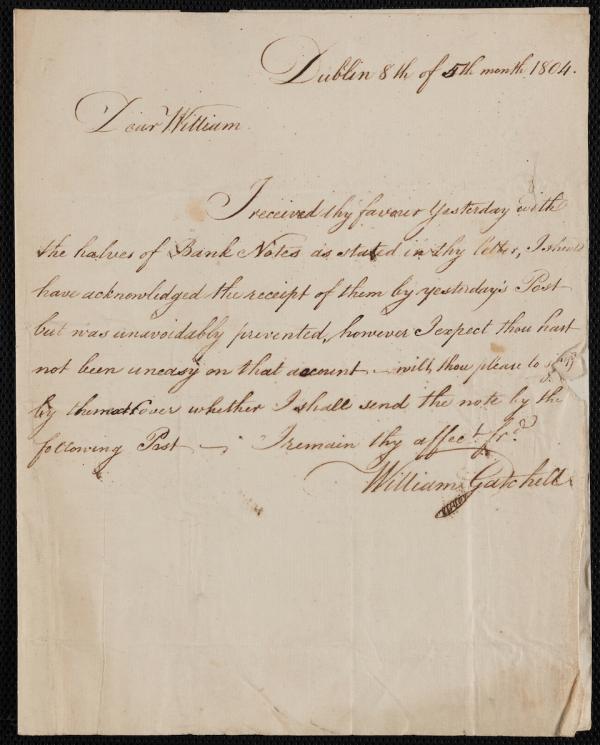 Dublin 8th of 5th month 1804.
Dear William
I received thy favour Yesterday with
the halves of Bank Notes as stated in thy letter, I should
have acknowledged the receipt of them by yesterday's Post
but was unavoidably prevented, however I expect thou hast
not been uneasy on that account — will thou please to
by the next cover whether I shall send the note by the
following Post — I remain thy affect. fr.d
William Gatchell